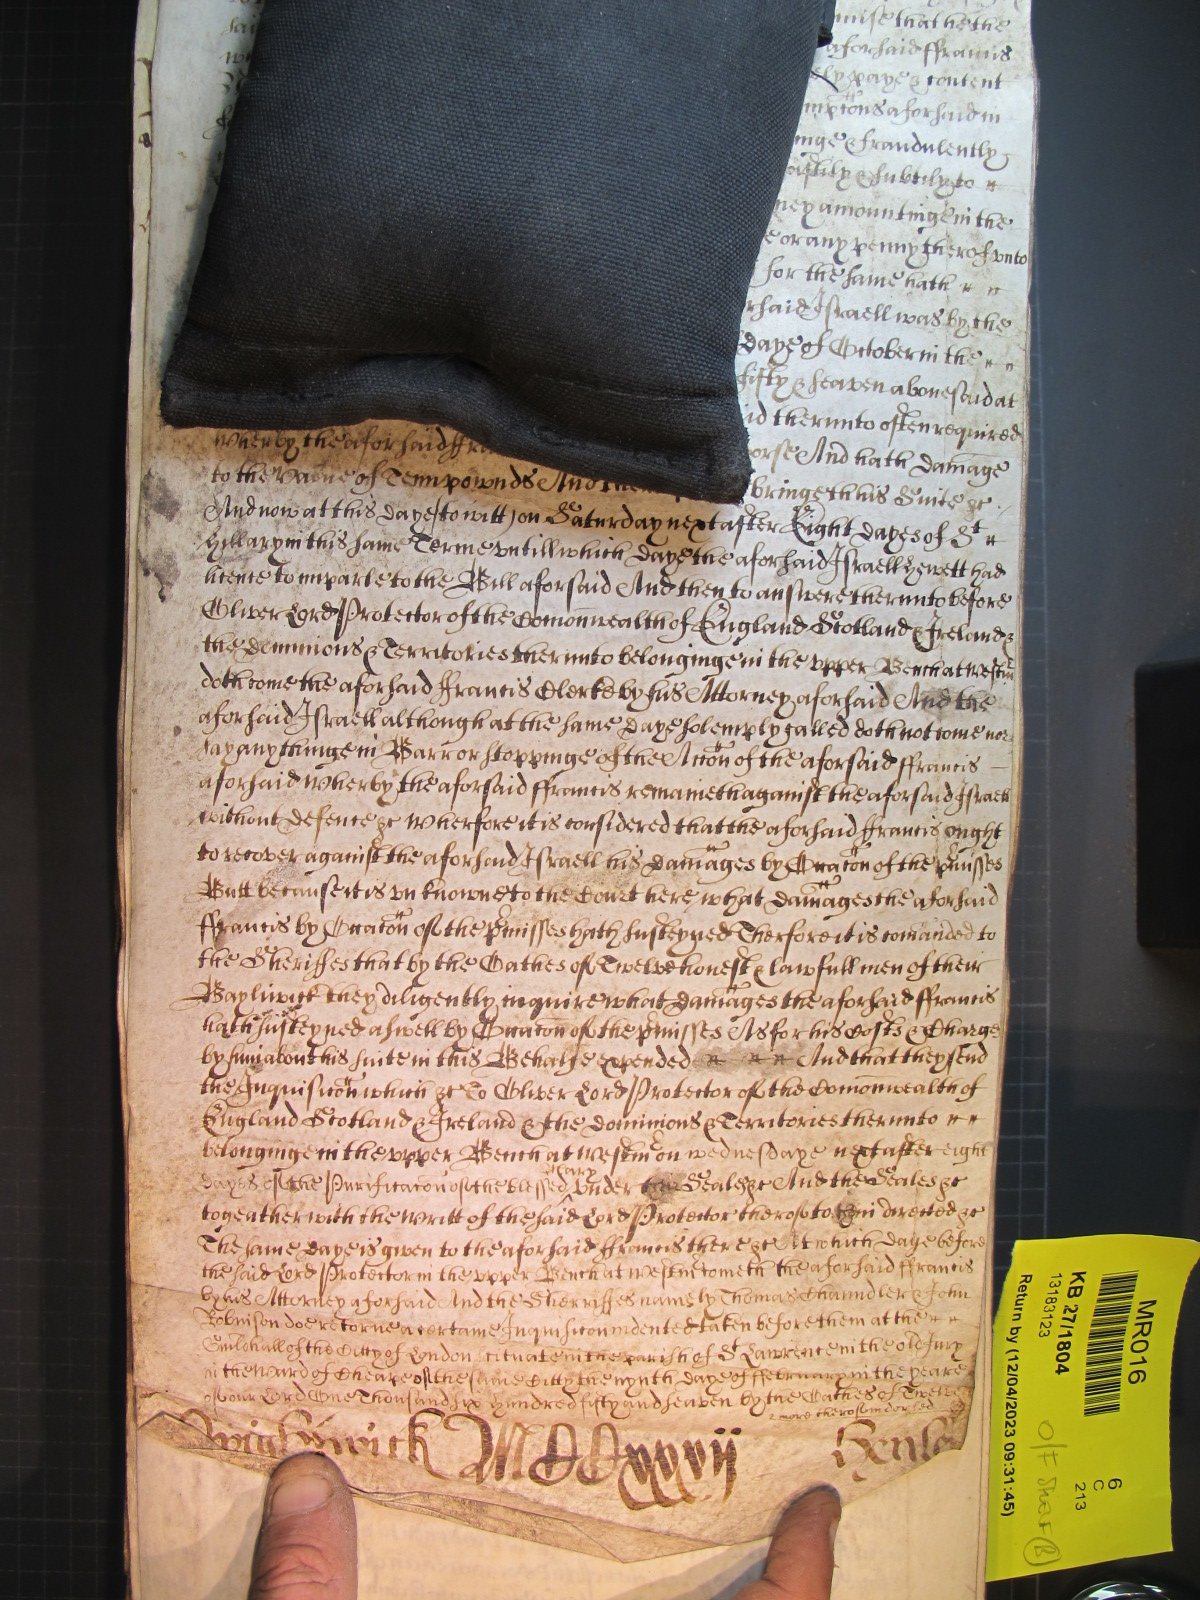 mise that he the
aforsaid ffrancis
ely paye & content
mpcons aforsaid in
inge & fraudulently
raftily & subtily to
ney amountinge in the
e or any penny therof unto
for the same hath
rsaid Israell was by the
daye of October in the
fifty & seaven abovesaid at
id therunto often required
wherby the aforsaid ffra orse And hath damage
to the value of Tenn pownds And bringeth his Suite &c
And now at this daye (to witt) on Saturday next after Eight dayes of St
Hillary in this same Terme untill which daye the aforsaid Israell Hewett had
licence to imparle to the Bill aforsaid And then to answere therunto before
Oliver Lord Protector of the Comonwealth of England Scotland & Ireland &
the dominions & Territories therunto belonginge in the upper Bench at Westm
doth come the aforsaid ffrancis Clerke by his Attorney aforsaid And the
aforsaid Israell although at the same daye solemply called doth not come nor
say any thinge in Barr or stoppinge of the Accon of the aforsaid ffrancis
aforsaid Wherby the aforsaid ffrancis remaineth against the aforsaid Israell
without defence &c Wherfore it is considered that the aforsaid ffrancis ought
to recover against the aforsaid Israell his damages by Occacon of the pmisses
Butt because it is unknowne to the Court here what damages the aforsaid
ffrancis by Occacon of the pmisses hath susteyned Therfore it is comanded to
the Sheriffes that by the Oathes of Twelve honest & lawfull men of their
Bayliwick they diligently inquire what damages the aforsaid ffrancis
hath susteyned aswell by Occacon of the pmisses As for his Costs & Charges
by him about his suite in this Behalfe expended And that they send
the Inquisicon which &c To Oliver Lord Protector of the Comonwealth of
England Scotland & Ireland & the dominions & Territories therunto
belonginge in the upper Bench at Westm on wednesdaye next after eight
dayes of the Purificacon of the blessed Mary under their Seales &c And the Seales &c
togeather with the Writt of the said Lord Protector therof to them directed &c
The same daye is given to the aforsaid ffrancis there &c At which daye before
the said Lord Protector in the upper Bench at Westm cometh the aforsaid ffrancis
by his Attorney aforsaid And the Sherriffes namely Thomas Channdler & John
Robinson doe retorne a certaine Inquisicon indented taken before them at the
Guildhall of the Citty of London scituate in the parish of St Lawrence in the old Jury
in the Ward of Cheape of the same Citty the nynth daye of ffebruary in the yeare
of our Lord One Thousand six hundred fifty and seaven by the Oathes of Twelve
& more therof indorsed
Wightwick MCCxxxvij Hens
MR016
KB 27/1804
13183123
Return by (12/04/2023 09:31:45)
6
C
213